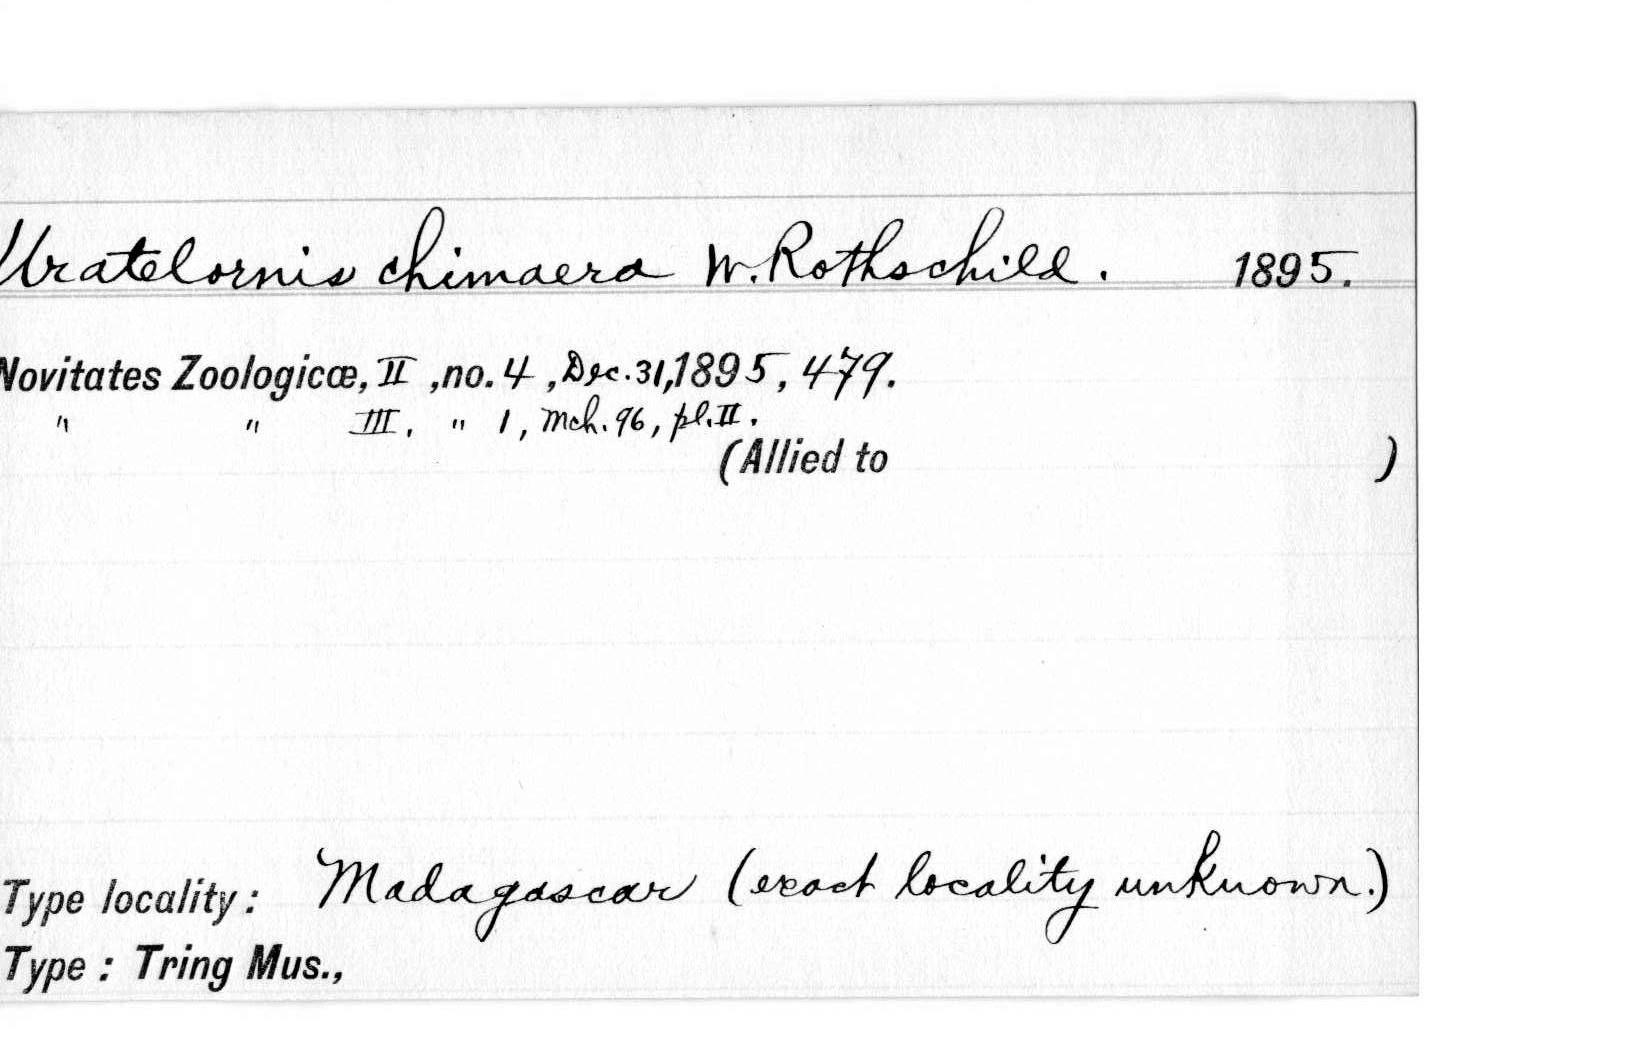 Uratelornis chimaera W. Rothschild. 1895.
Novitates Zoologicæ, II, no. 4, Dec. 31, 1895, 479.
" " III. " 1, Mch. 96, pl. II.
(Allied to )
Type locality: Madagascar (exact locality unknown.)
Type: Tring Mus.,